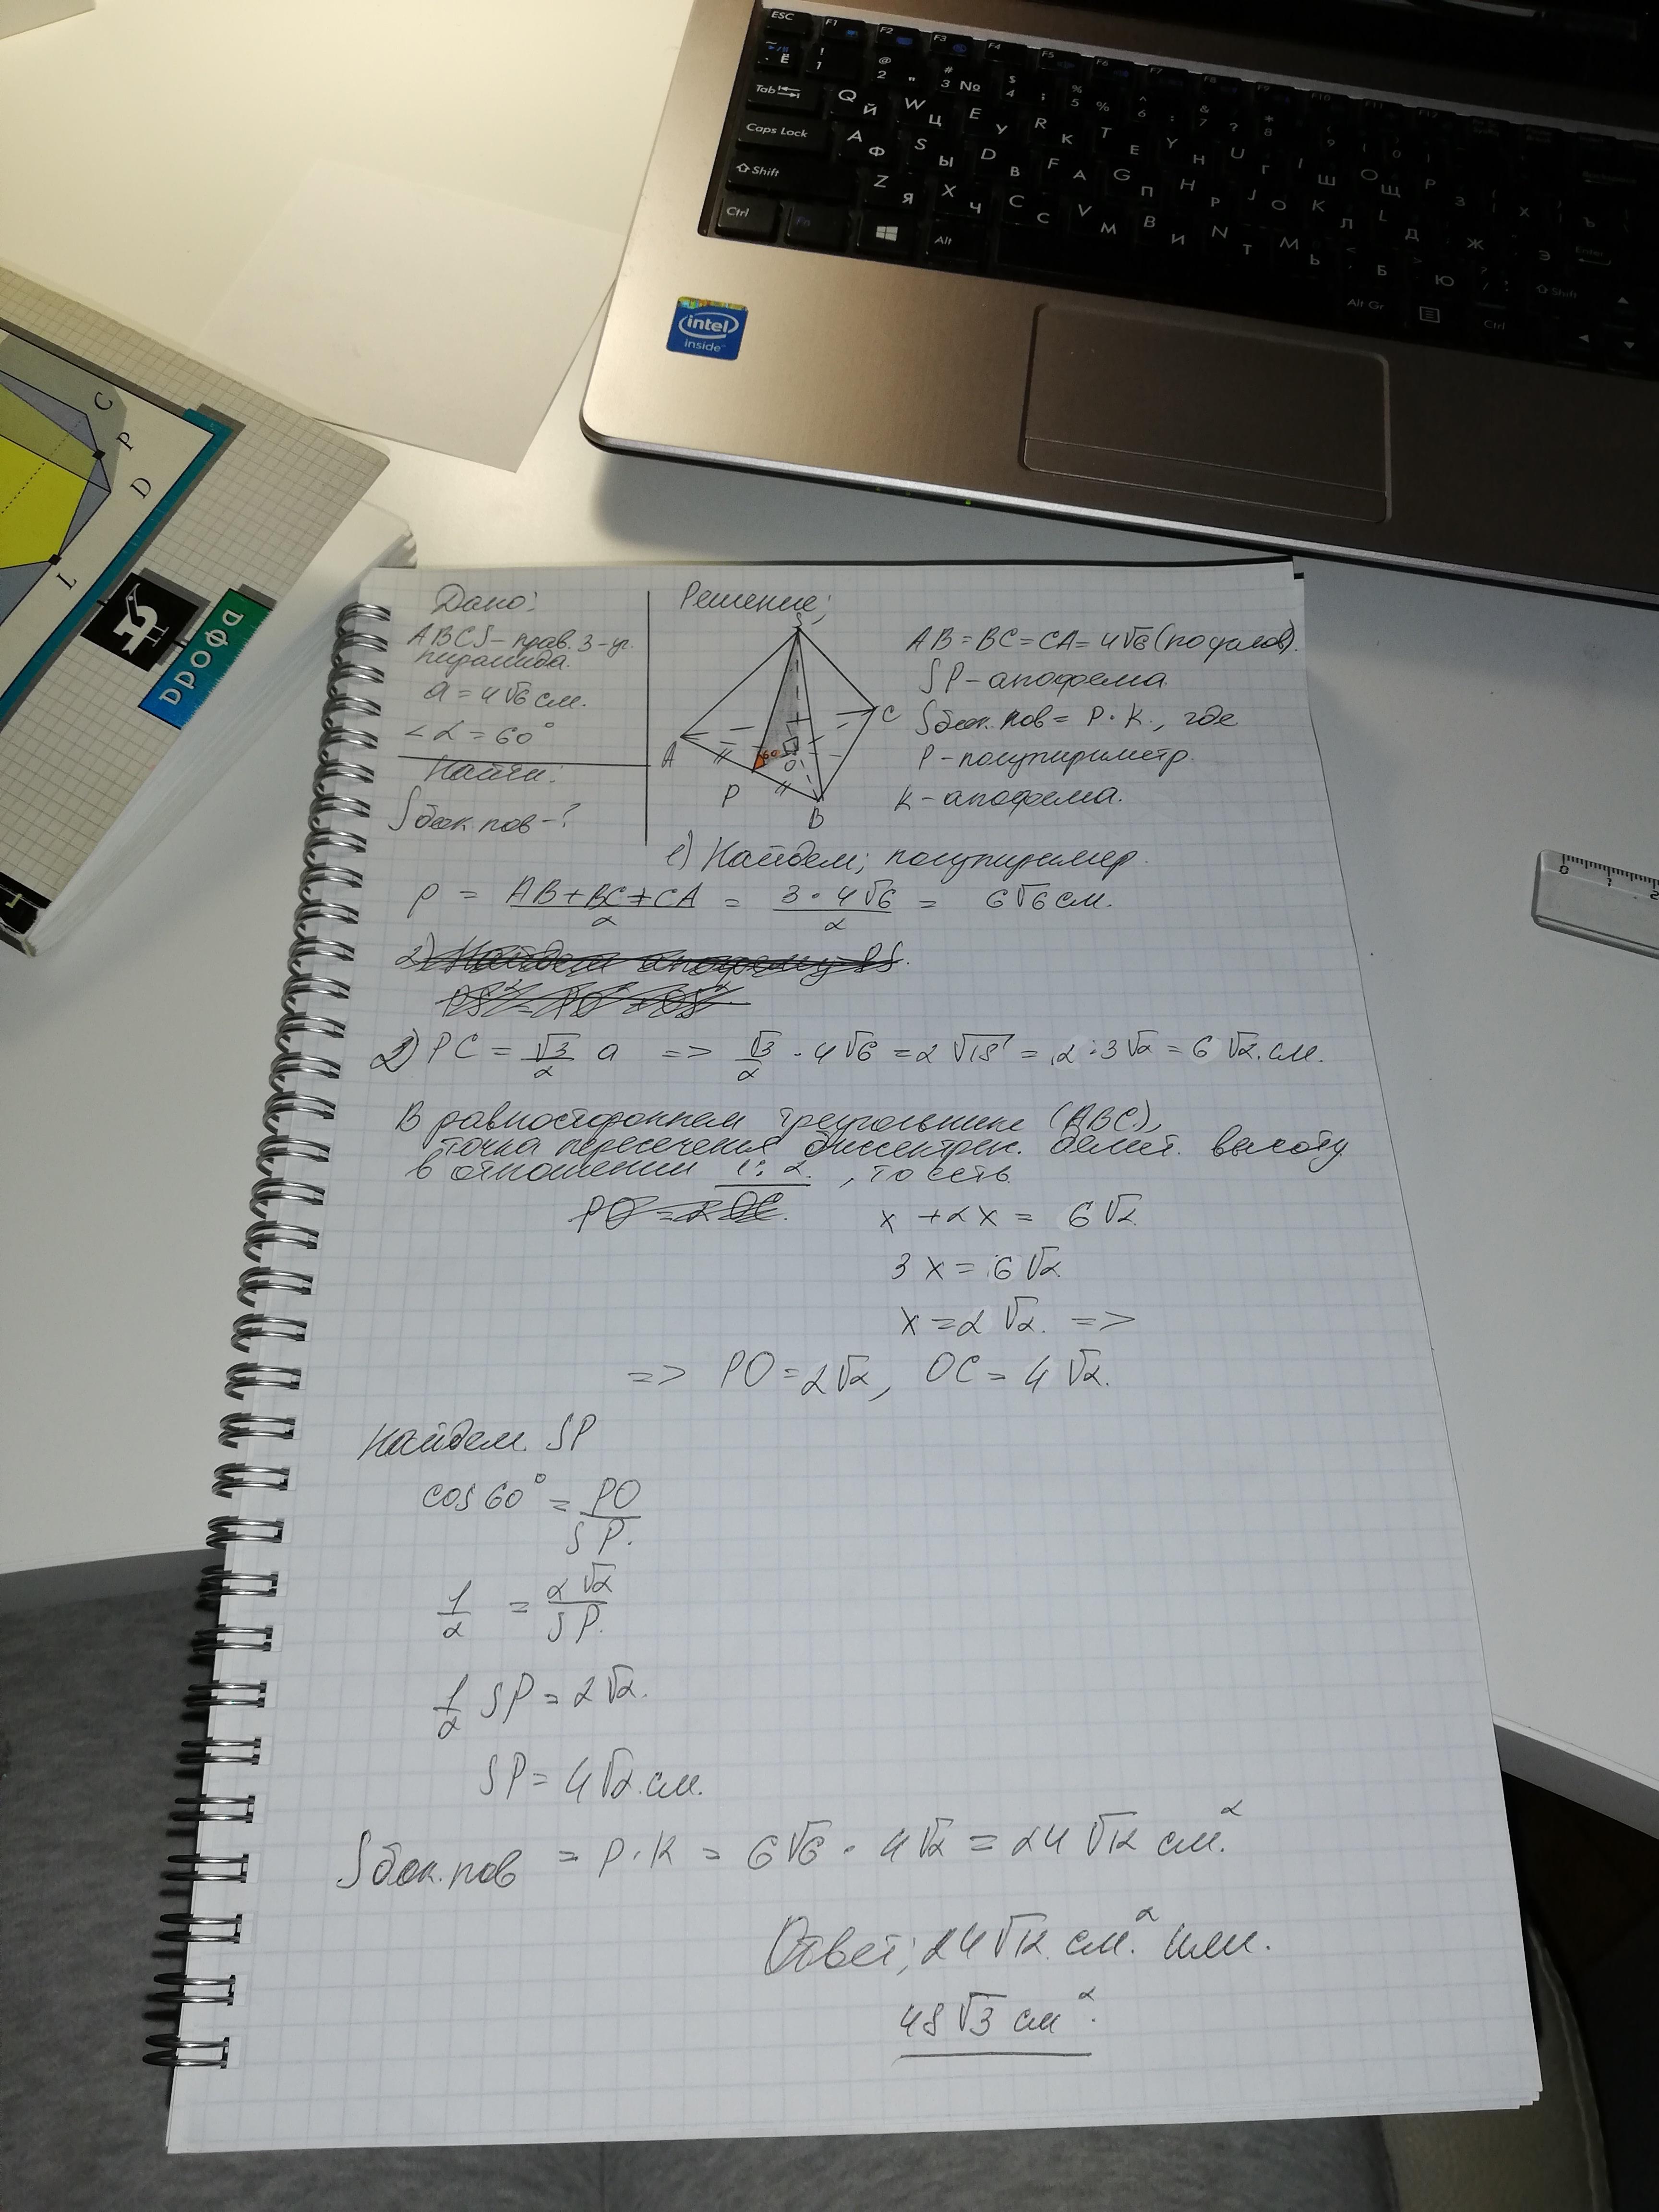 ESC F1 F2 F3 F4 F5 F6 F7 F8 F9 F10 F11 F12
Ё ! 1 @ 2 " # 3 № $ 4 ; % 5 % ^ 6 : & 7 ? * 8
Tab Q Й W Ц E У R К T Е Y Н U Г I Ш O Щ P З Х Ъ
Caps Lock A Ф S Ы D В F А G П H Р J О K Л L Д Ж Э Enter
Shift Z Я X Ч C С V М B И N Т M Ь Б Ю Shift
Ctrl Fn Alt Alt Gr Ctrl
intel
inside
C
P
D
L
дрофа
0 1 2
Дано:
ABCS – прав. 3-уг.
пирамида.
a = 4√6 см.
∠α = 60°
Найти:
Sбок.пов - ?
Решение;
S
A
P
B
C
O
60
AB = BC = CA = 4√6 (по услов).
SP – апофема
Sбок.пов = P · K, где
P – полупириметр.
K – апофема.
1) Найдем; полупиример.
p = AB + BC + CA / 2 = 3 · 4√6 / 2 = 6√6 см.
2) Найдем апофему PS.
PS² = PO² + OS²
2) PC = √3/2 a => √3/2 · 4√6 = 2√18 = 2 · 3√2 = 6√2 см.
В равностороннем треугольнике (ABC),
точка пересечения биссектрис. делит. высоту
в отношении 1:2, то есть
PO = 2 OC.
x + 2x = 6√2
3x = 6√2
x = 2√2. =>
=> PO = 2√2, OC = 4√2.
Найдем. SP
cos 60° = PO / SP.
1/2 = 2√2 / SP.
1/2 SP = 2√2.
SP = 4√2 см.
Sбок.пов = P · K = 6√6 · 4√2 = 24√12 см²
Ответ; 24√12 см.² или.
48√3 см².